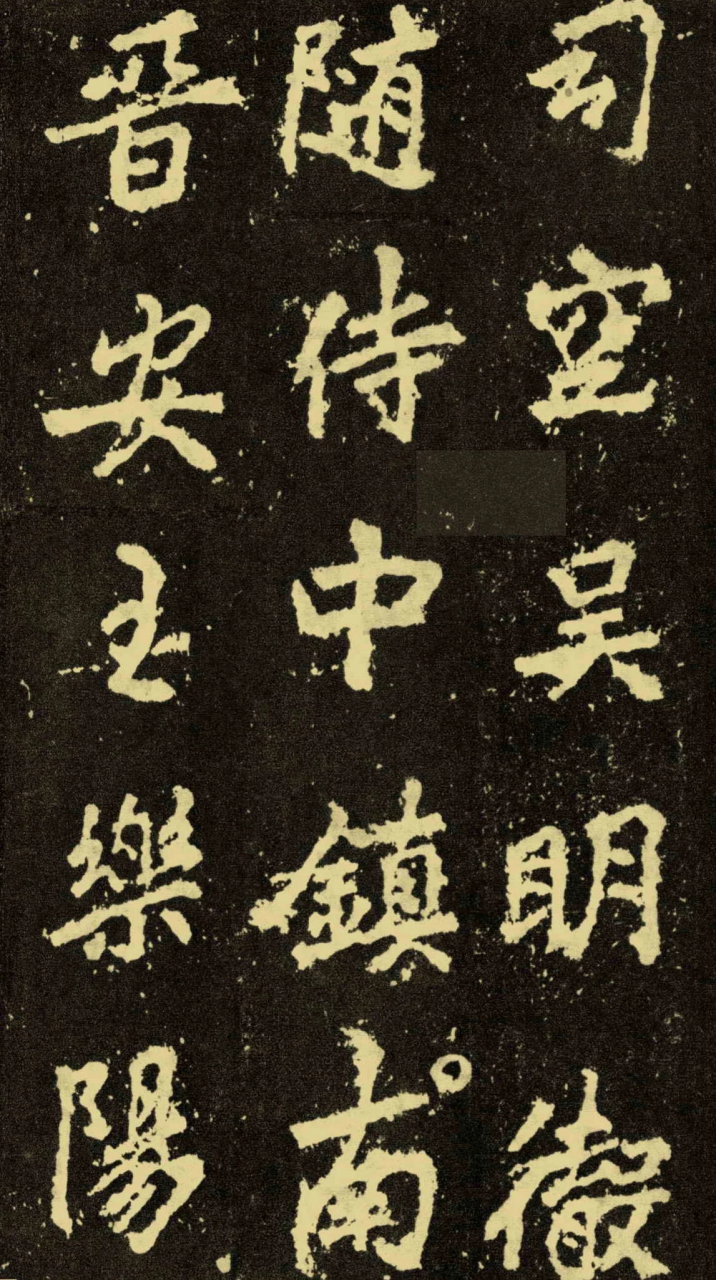 司空吴明徹
随侍中鎮南
晉安王樂陽